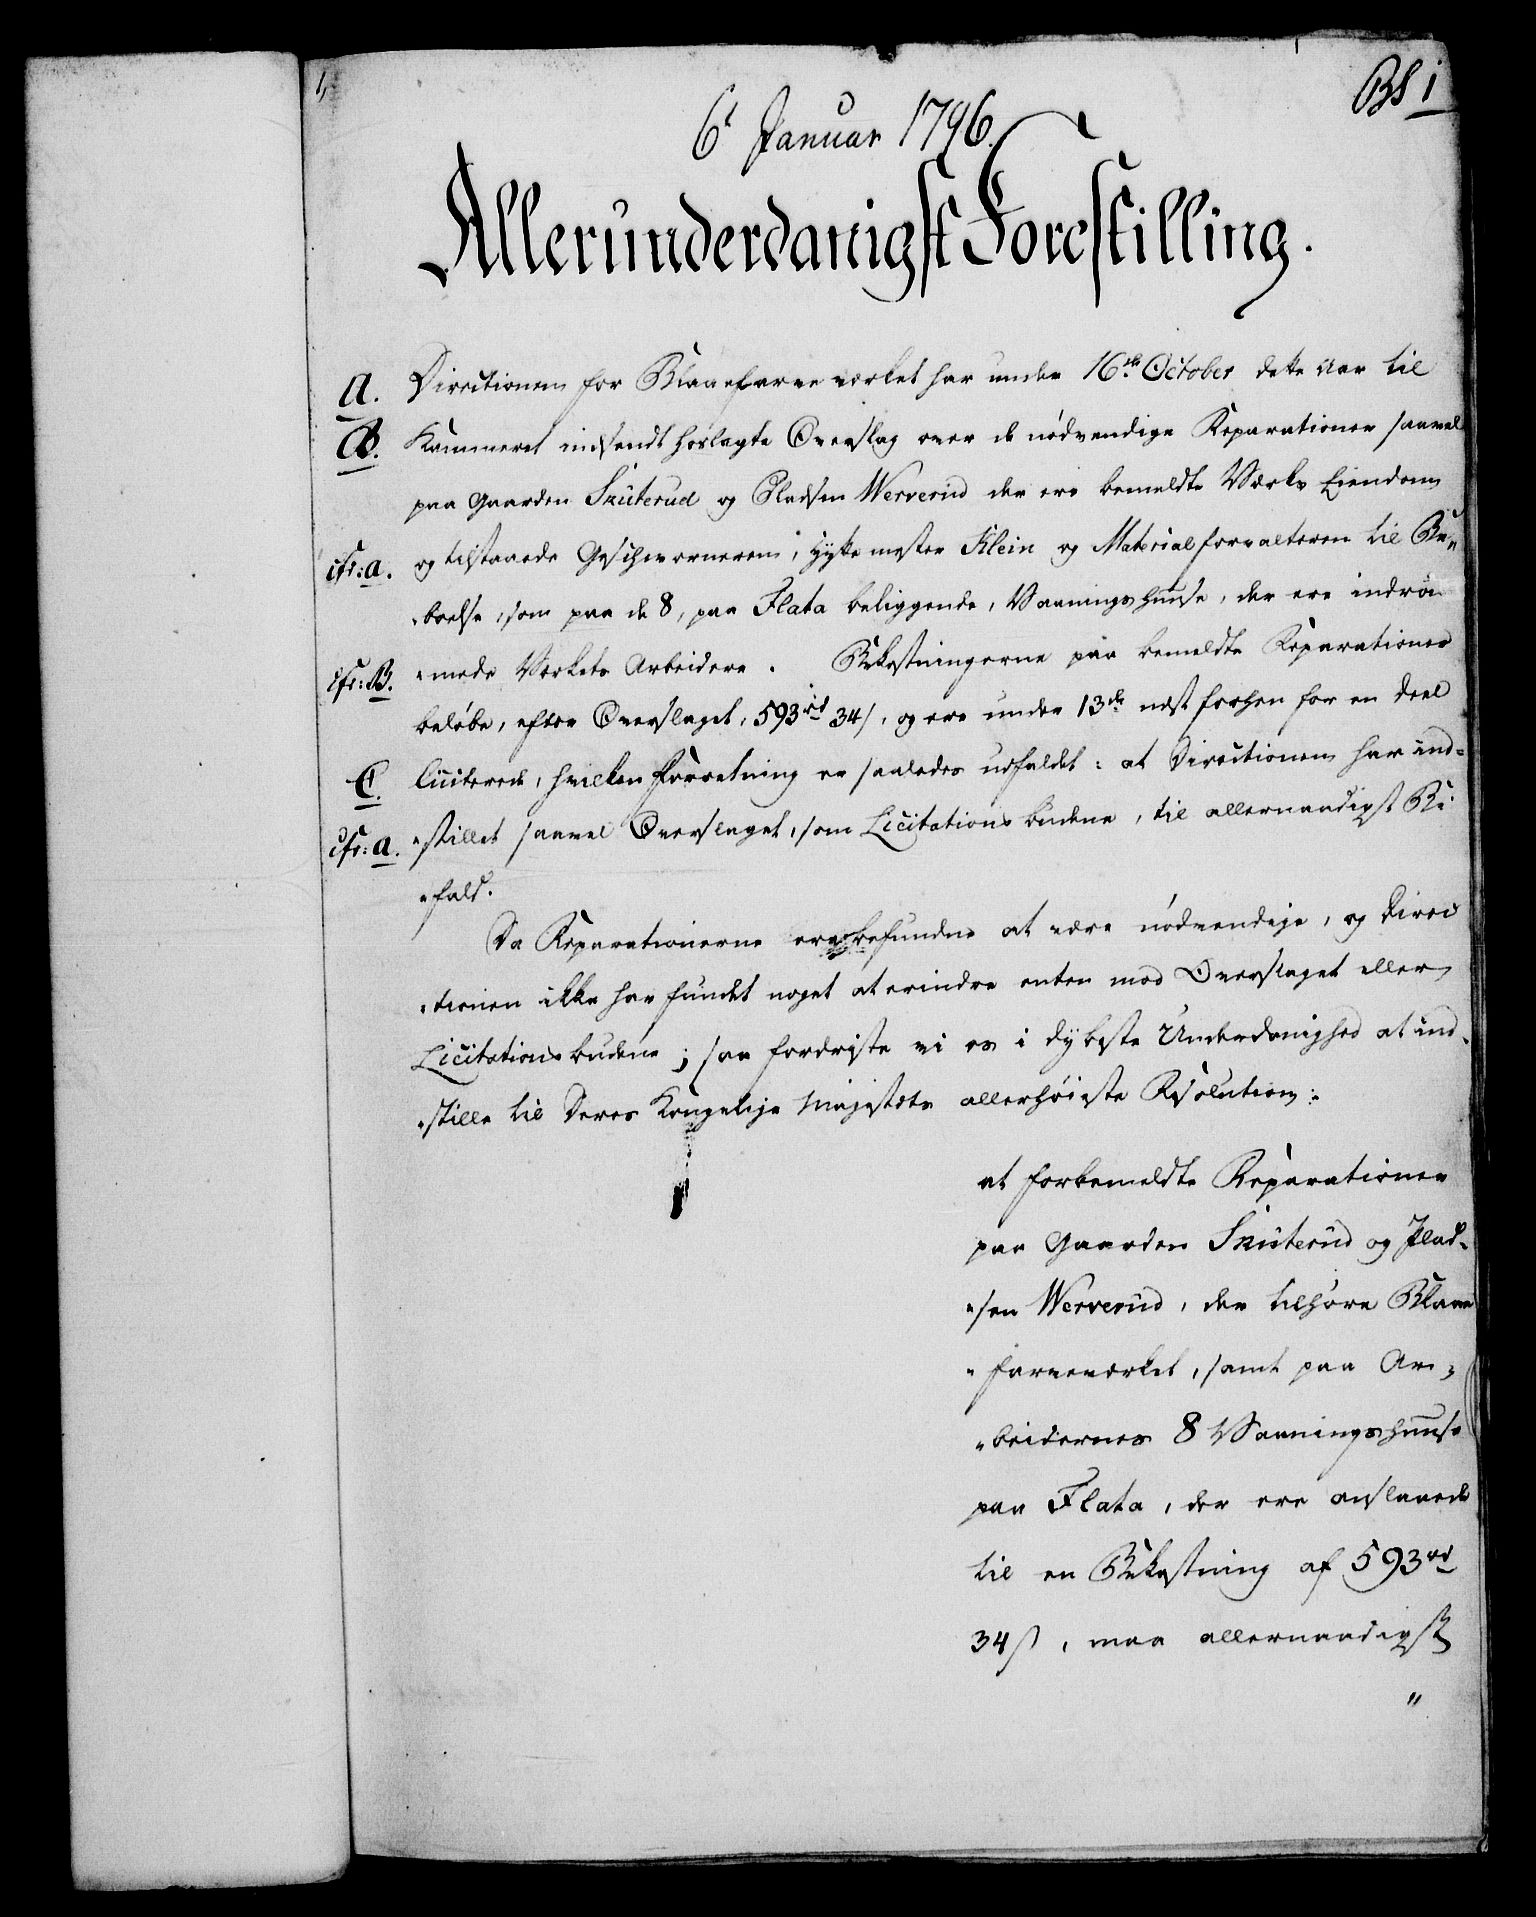 1,
BS 1
6t Januar 1796.
Allerunderdanigst Forestilling.
a. Directionen for Blaaefarveværket har under 16de October dette Aar til
B. Kammeret indsendt hoslagte Overslag over de nödvendige Reparationer saavel
paa Gaarden Skuterud og Pladsen Werverud der ere bemeldte Værks Eiendom
cfr: a. og tilstaaede Geschwornerem, Hyttemester Klein og Materialforvalteren til Be„
„boelse, som paa de 8, paa Flata beliggende, Vaaningshuuse, der ere indröm
cfr: B. „mede Værkets Arbeidere. Bekostningerne paa bemeldte Reparationer
belöbe, efter Overslaget, 593 rd 34 s, og ere under 13de næst forhen for en Deel
C. liciterede, hvilken Forretning er saaledes udfaldet: at Directionen har ind„
cfr: a. „stillet saavel Overslaget, som Licitationsbudene, til allernaadigst Bi„
„fald.
Da Reparationerne ere befundne at være nödvendige, og Direc
„tionen ikke har fundet noget at erindre enten mod Overslaget eller
Licitationsbudene; saa fordriste vi os i dybeste Underdanighed at ind„
„stille til Deres Kongelige Majestæts allerhöieste Resolution:
at forbemeldte Reparationer
paa Gaarden Skuterud og Plad„
„sen Werverud, der tilhöre Blaae
„farveværket, samt paa Ar„
„beidernes 8 Vaaningshuuse
paa Flata, der ere anslaaede
til en Bekostning af 593 rd
34 s, maa allernaadigst
„